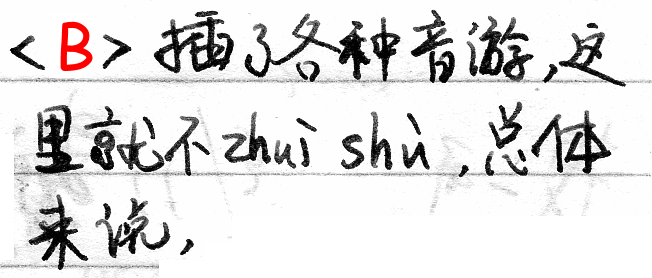 <B>插了各种音游,这
里就不zhuì shù,总体
来说,